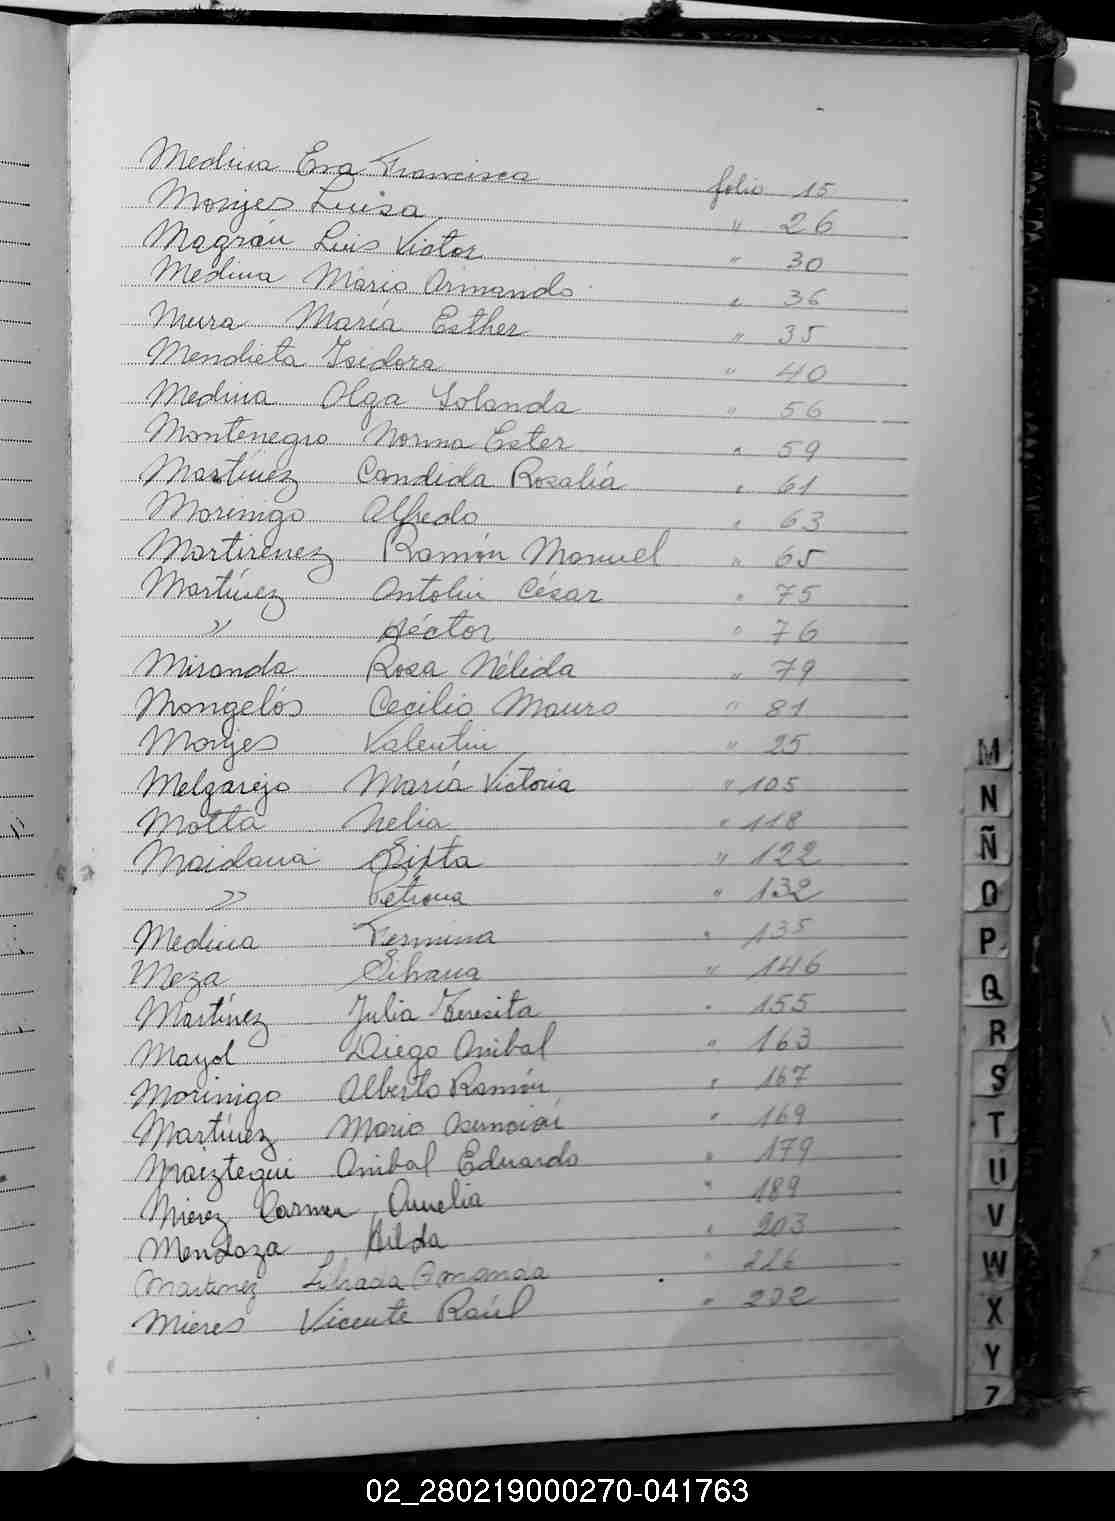 Medina Eva Francisca folio 15
Monjes Luisa " 26
Magrán Luis Victor " 30
Medina Mario Armando " 36
Mura María Esther " 35
Mendieta Isidora " 40
Medina Olga Iolanda " 56
Montenegro Norma Ester " 59
Martínez Candida Rosalía " 61
Morinigo Alfredo " 63
Martirenez Ramón Manuel " 65
Martínez Antolin César " 75
" Héctor " 76
Miranda Rosa Nélida " 79
Mongelós Cecilio Mauro " 81
Monjes Valentin " 25
Melgarejo María Victoria " 105
Motta Nelia " 118
Maidana Sixta " 122
" Petrona " 132
Medina Fermina " 135
Meza Silvana " 146
Martínez Julia Teresita " 155
Mayol Diego Anibal " 163
Morinigo Alberto Ramón " 167
Martínez Mario " 169
Maiztegui Anibal Eduardo " 179
Mierez Carmen Amelia " 189
Mendoza Hilda " 203
Martinez Librada Amanda " 226
Mieres Vicente Raúl " 232
M
N
Ñ
O
P
Q
R
S
T
U
V
W
X
Y
02_280219000270-041763